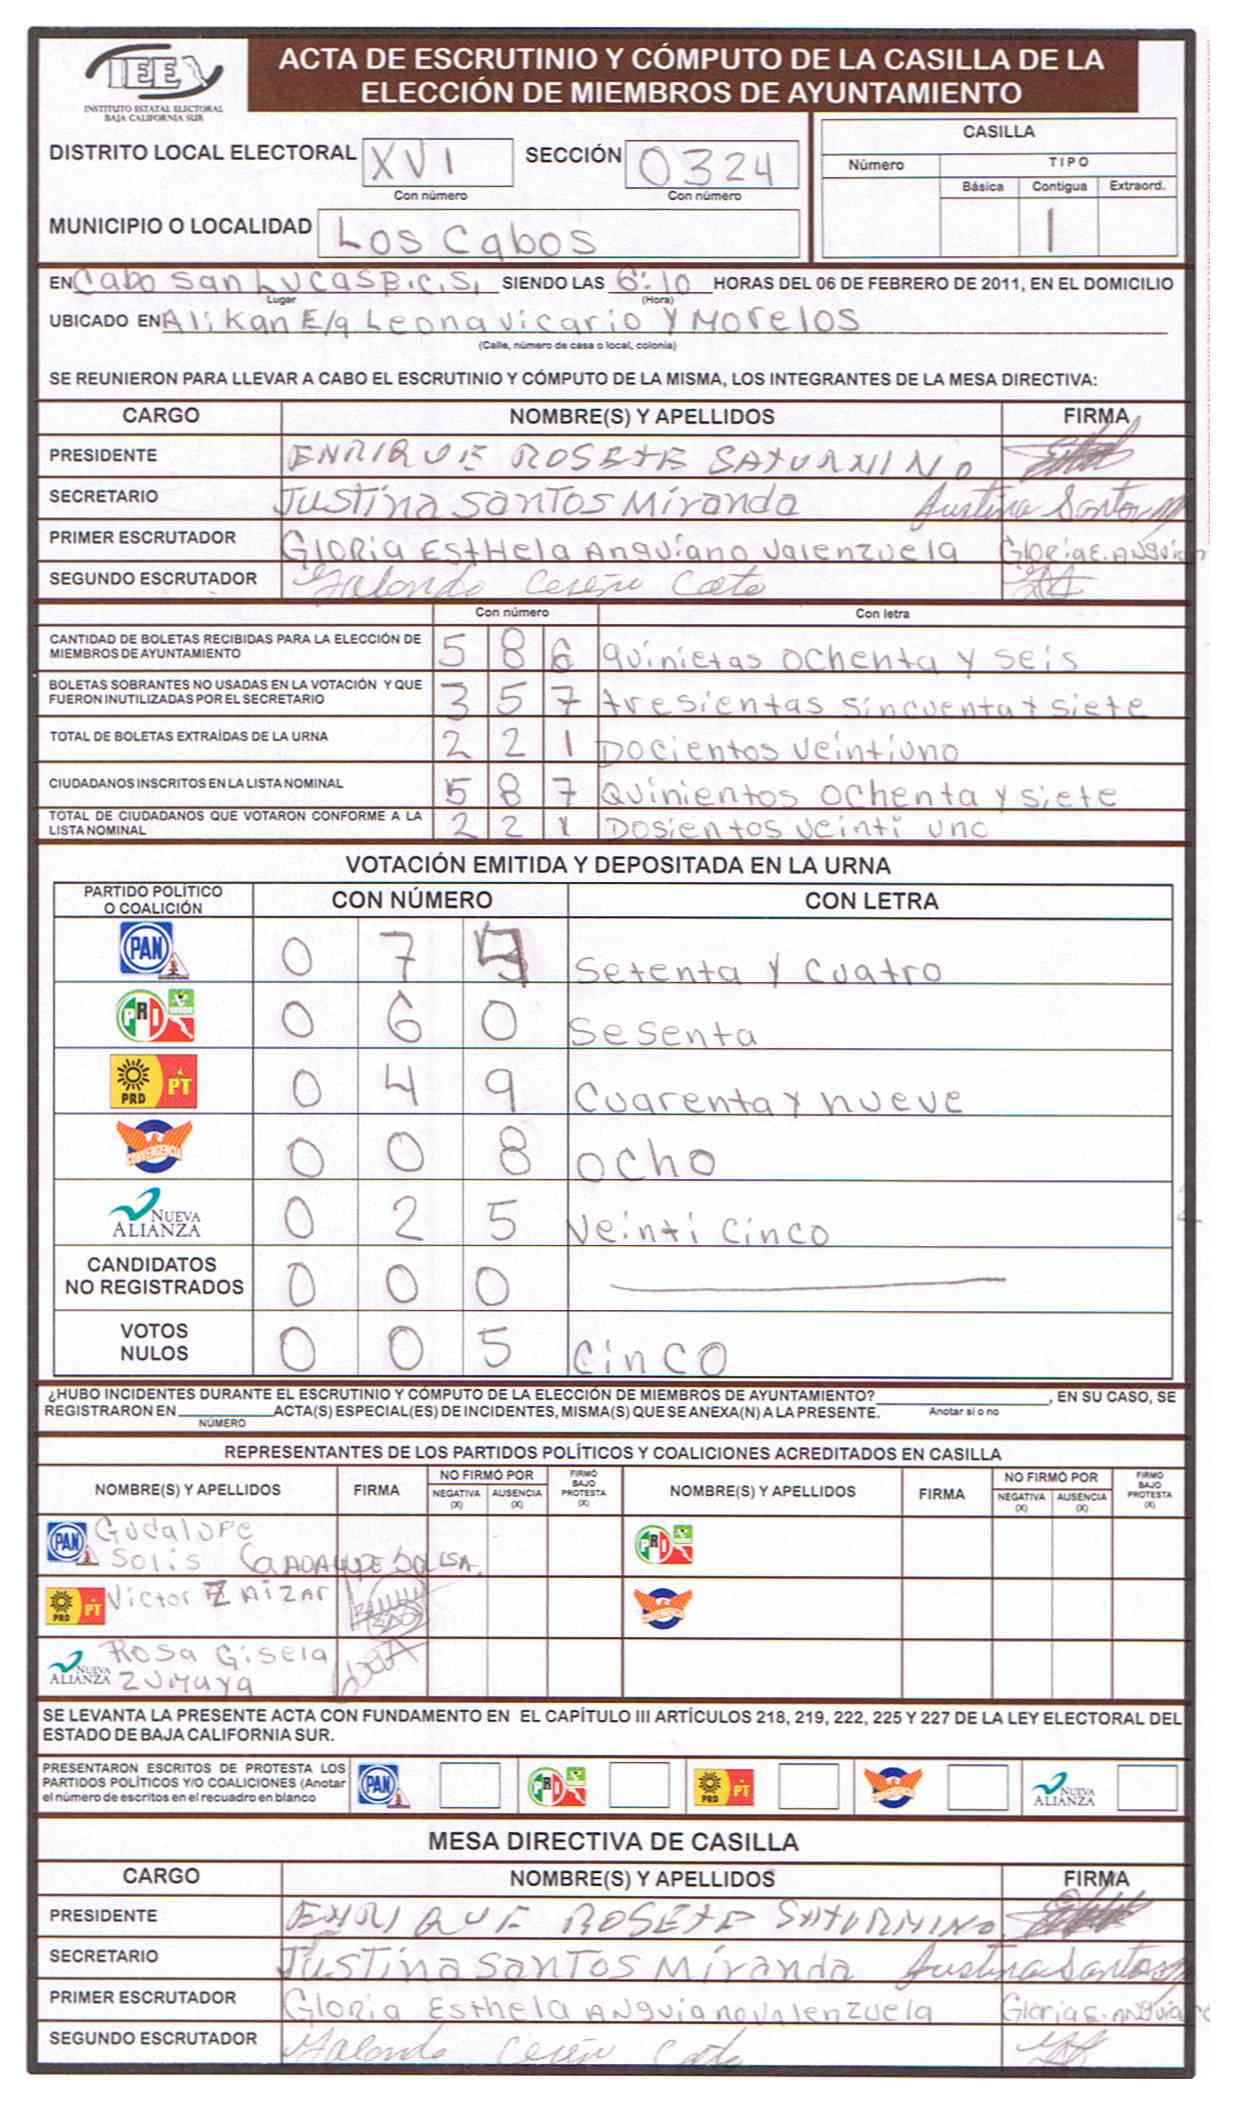 IEE
INSTITUTO ESTATAL ELECTORAL
BAJA CALIFORNIA SUR
ACTA DE ESCRUTINIO Y CÓMPUTO DE LA CASILLA DE LA
ELECCIÓN DE MIEMBROS DE AYUNTAMIENTO
DISTRITO LOCAL ELECTORAL XVI SECCIÓN 0324
Con número Con número
MUNICIPIO O LOCALIDAD Los Cabos
CASILLA
Número TIPO
Básica Contigua Extraord.
1
EN Cabo San Lucas B.C.S. SIENDO LAS 6:10 HORAS DEL 06 DE FEBRERO DE 2011, EN EL DOMICILIO
Lugar (Hora)
UBICADO EN Alikan E/q Leona vicario Y Morelos
(Calle, número de casa o local, colonia)
SE REUNIERON PARA LLEVAR A CABO EL ESCRUTINIO Y CÓMPUTO DE LA MISMA, LOS INTEGRANTES DE LA MESA DIRECTIVA:
CARGO NOMBRE(S) Y APELLIDOS FIRMA
PRESIDENTE ENRIQUE ROSETE SATURNINO
SECRETARIO Justina Santos Miranda Justina Santos M
PRIMER ESCRUTADOR Gloria Esthela Anguiano Valenzuela Gloria E. Anguian
SEGUNDO ESCRUTADOR
Con número Con letra
CANTIDAD DE BOLETAS RECIBIDAS PARA LA ELECCIÓN DE
MIEMBROS DE AYUNTAMIENTO 5 8 6 quinietas ochenta y seis
BOLETAS SOBRANTES NO USADAS EN LA VOTACIÓN Y QUE
FUERON INUTILIZADAS POR EL SECRETARIO 3 5 7 tresientas sincuenta y siete
TOTAL DE BOLETAS EXTRAÍDAS DE LA URNA 2 2 1 Docientos veintiuno
CIUDADANOS INSCRITOS EN LA LISTA NOMINAL 5 8 7 Quinientos ochenta y siete
TOTAL DE CIUDADANOS QUE VOTARON CONFORME A LA
LISTA NOMINAL 2 2 1 Dosientos veinti uno
VOTACIÓN EMITIDA Y DEPOSITADA EN LA URNA
PARTIDO POLÍTICO
O COALICIÓN CON NÚMERO CON LETRA
PAN 0 7 4 Setenta y cuatro
PRI 0 6 0 Sesenta
PRD PT 0 4 9 Cuarenta y nueve
CONVERGENCIA 0 0 8 ocho
NUEVA ALIANZA 0 2 5 Veinti cinco
CANDIDATOS
NO REGISTRADOS 0 0 0
VOTOS
NULOS 0 0 5 Cinco
¿HUBO INCIDENTES DURANTE EL ESCRUTINIO Y CÓMPUTO DE LA ELECCIÓN DE MIEMBROS DE AYUNTAMIENTO? , EN SU CASO, SE
REGISTRARON EN ACTA(S) ESPECIAL(ES) DE INCIDENTES, MISMA(S) QUE SE ANEXA(N) A LA PRESENTE. Anotar si o no
NÚMERO
REPRESENTANTES DE LOS PARTIDOS POLÍTICOS Y COALICIONES ACREDITADOS EN CASILLA
NOMBRE(S) Y APELLIDOS FIRMA NO FIRMÓ POR NEGATIVA (X) AUSENCIA (X) FIRMÓ BAJO PROTESTA (X) NOMBRE(S) Y APELLIDOS FIRMA NO FIRMÓ POR NEGATIVA (X) AUSENCIA (X) FIRMÓ BAJO PROTESTA (X)
PAN Gudalupe
Solis PRI
PRD PT Victor Aizar
Rosa Gisela
NUEVA ALIANZA Zumaya
SE LEVANTA LA PRESENTE ACTA CON FUNDAMENTO EN EL CAPÍTULO III ARTÍCULOS 218, 219, 222, 225 Y 227 DE LA LEY ELECTORAL DEL
ESTADO DE BAJA CALIFORNIA SUR.
PRESENTARON ESCRITOS DE PROTESTA LOS
PARTIDOS POLÍTICOS Y/O COALICIONES (Anotar
el número de escritos en el recuadro en blanco PAN PRI PRD PT NUEVA ALIANZA
MESA DIRECTIVA DE CASILLA
CARGO NOMBRE(S) Y APELLIDOS FIRMA
PRESIDENTE ENRIQUE ROSETE SATURNINO
SECRETARIO Justina Santos Miranda Justina Santos
PRIMER ESCRUTADOR Gloria Esthela Anguiano Valenzuela Gloria E. Anguiano
SEGUNDO ESCRUTADOR